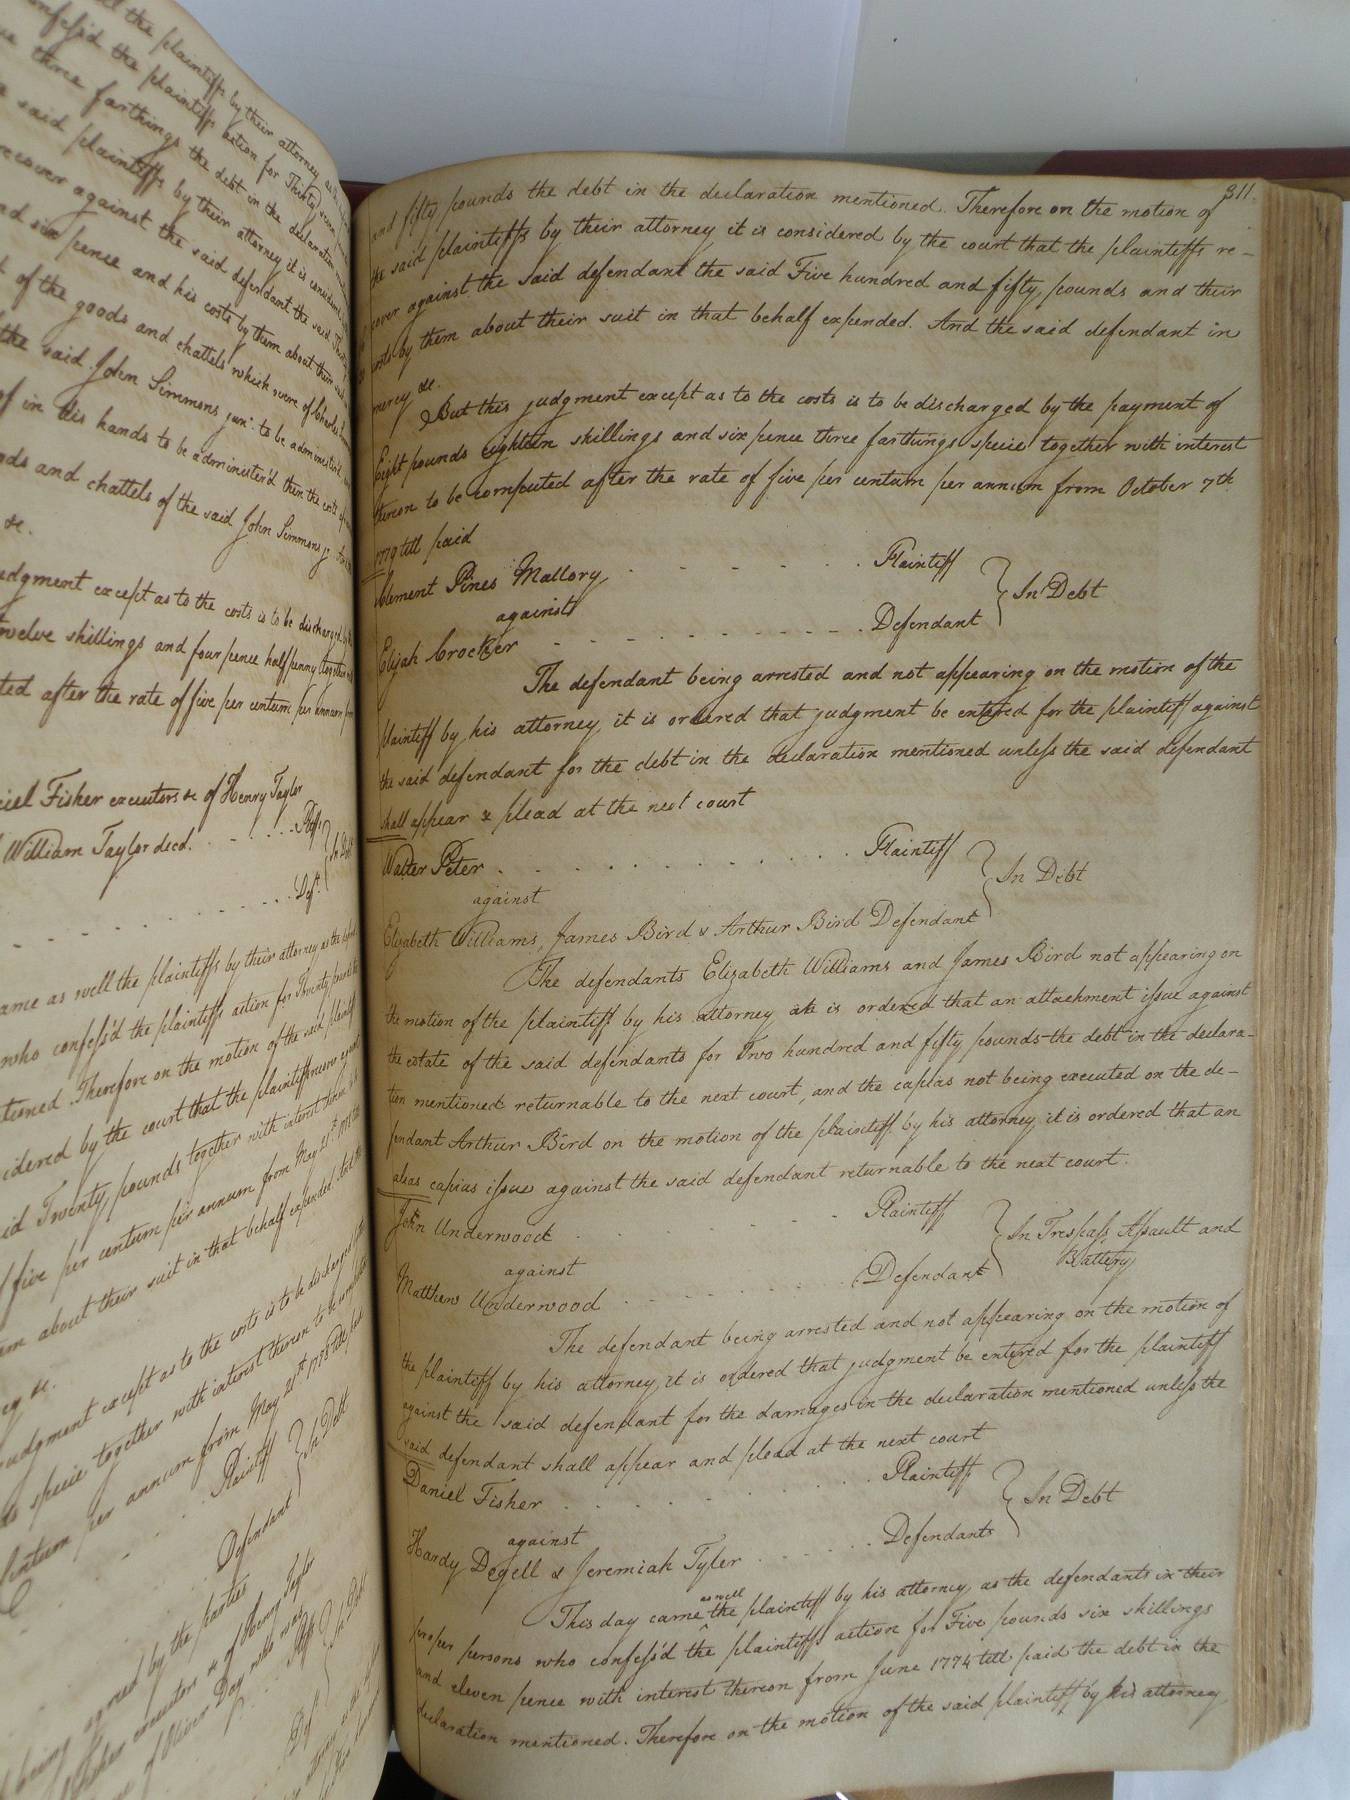 the plaintiffs by their attorney
confess'd the plaintiffs action for Thirty seven
three farthings the debt in the declaration
said plaintiffs by their attorney it is considered
recover against the said defendant the said Thirty
and six pence and his costs by them about their suit
of the goods and chattels which were of Charles
the said John Simmons junr. to be administer'd
of in his hands to be administer'd then the costs
and chattels of the said John Simmons jr.
&c.
judgment except as to the costs is to be discharged
twelve shillings and four pence halfpenny together
after the rate of five per centum per annum from
Fisher executors &c of Henry Taylor
William Taylor decd. Plffs In Debt
Deft.
came as well the plaintiffs by their attorney as the
who confess'd the plaintiffs action for Twenty pounds
Therefore on the motion of the said plaintiffs
considered by the court that the plaintiffs recover against
said Twenty pounds together with interest
of five per centum per annum from May 21st 1785
about their suit in that behalf expended
&c.
judgment except as to the costs is to be discharged
specie together with interest thereon to be computed
centum per annum from May 21st 1785 till paid
Plaintiff In Debt
Defendant
being agreed by the parties
Fisher executors &c of Henry Taylor
of Oliver Day who was Plffs In Debt
311.
and fifty pounds the debt in the declaration mentioned. Therefore on the motion of
the said plaintiffs by their attorney it is considered by the court that the plaintiffs re-
cover against the said defendant the said Five hundred and fifty pounds and their
costs by them about their suit in that behalf expended. And the said defendant in
mercy &c.
But this judgment except as to the costs is to be discharged by the payment of
Eight pounds eighteen shillings and six pence three farthings specie together with interest
thereon to be computed after the rate of five per centum per annum from October 7th
1779 till paid
Clement Pines Mallory Plaintiff
against In Debt
Elijah Crocker Defendant
The defendant being arrested and not appearing on the motion of the
plaintiff by his attorney, it is ordered that judgment be entered for the plaintiff against
the said defendant for the debt in the declaration mentioned unless the said defendant
shall appear & plead at the next court
Walter Peter Plaintiff
against In Debt
Elizabeth Williams, James Bird & Arthur Bird Defendant
The defendants Elizabeth Williams and James Bird not appearing on
the motion of the plaintiff by his attorney it is ordered that an attachment issue against
the estate of the said defendants for Two hundred and fifty pounds the debt in the declara-
tion mentioned returnable to the next court, and the capias not being executed on the de-
fendant Arthur Bird on the motion of the plaintiff by his attorney it is ordered that an
alias capias issue against the said defendant returnable to the next court.
John Underwood Plaintiff
against In Trespass Assault and Battery
Matthew Underwood Defendant
The defendant being arrested and not appearing on the motion of
the plaintiff by his attorney, it is ordered that judgment be entered for the plaintiff
against the said defendant for the damages in the declaration mentioned unless the
said defendant shall appear and plead at the next court
Daniel Fisher Plaintiff
against In Debt
Hardy Degell & Jeremiah Tyler Defendants
This day came as well the plaintiff by his attorney, as the defendants in their
proper persons who confess'd the plaintiffs action for Five pounds six shillings
and eleven pence with interest thereon from June 1774 till paid the debt in the
declaration mentioned. Therefore on the motion of the said plaintiff by his attorney